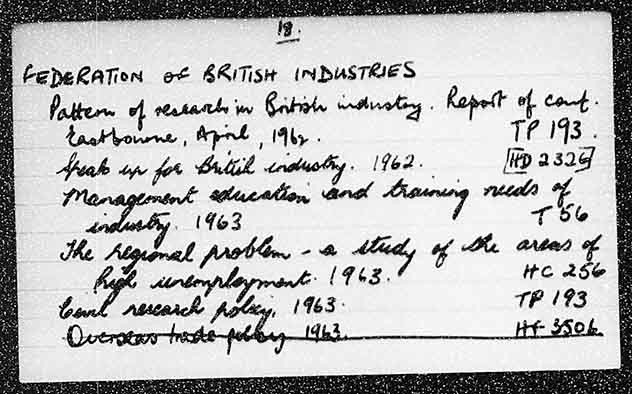 18.
FEDERATION OF BRITISH INDUSTRIES
Pattern of research in British industry. Report of conf.
Eastbourne, April, 1962. TP 193.
Speak up for British industry. 1962. [HD 2326]
Management education and training needs of
industry. 1963 T 56
The regional problem - a study of the areas of
high unemployment. 1963. HC 256
Civil research policy, 1963. TP 193
Overseas trade policy 1963. HF 3506.